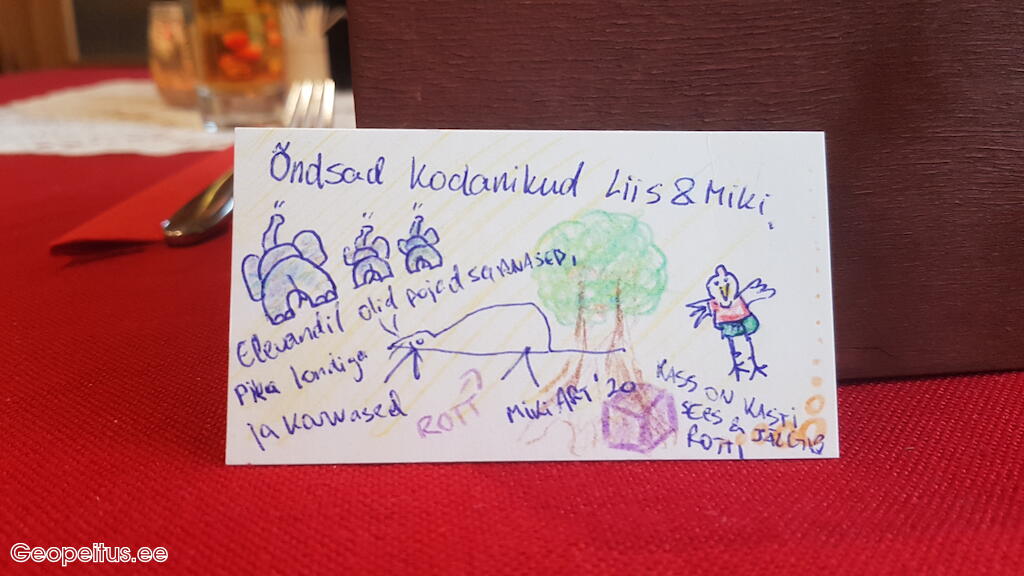 Õndsad kodanikud Liis & Miki
Elevandil olid pojad seitanased,
pika londiga
ja karvased
ROTT
MIKI ART '20
KASS ON KASTI
SEES &
ROTTI JÄLGIB
Geopeitus.ee